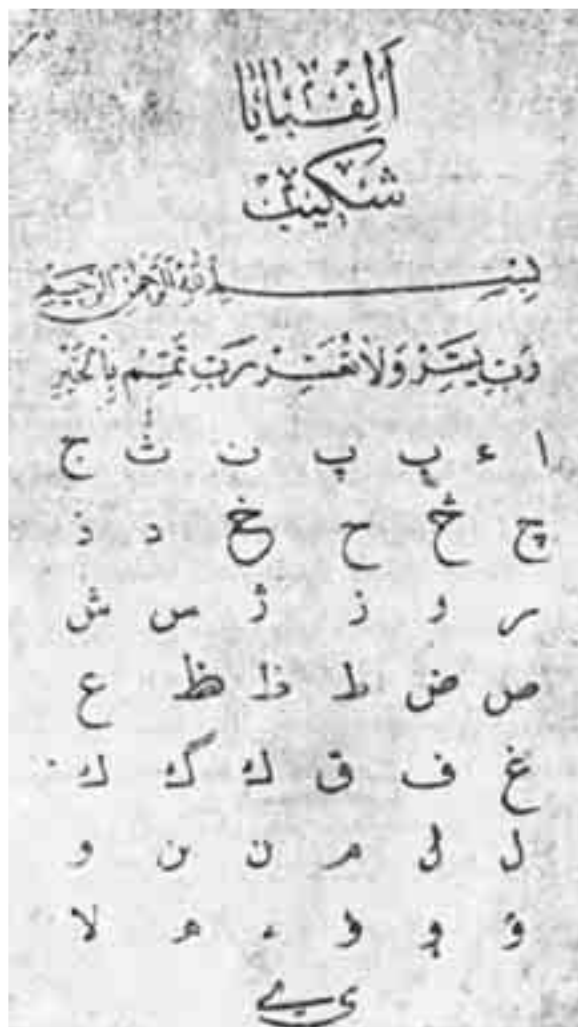 اَلِفْبَايَا
شكيپ
بِسْمِ اللهِ الرَّحْمٰنِ الرَّحِيمِ
رَبِّ يَسِّرْ وَلَا تُعَسِّرْ رَبِّ تَمِّمْ بِالْخَيْرِ
ا ء ب پ ت ث ج
چ ح خ د ذ
ر ز ژ س ش
ص ض ط ظ ع
غ ف ق ك گ
ل م ن و
و ء ه لا
ى ے